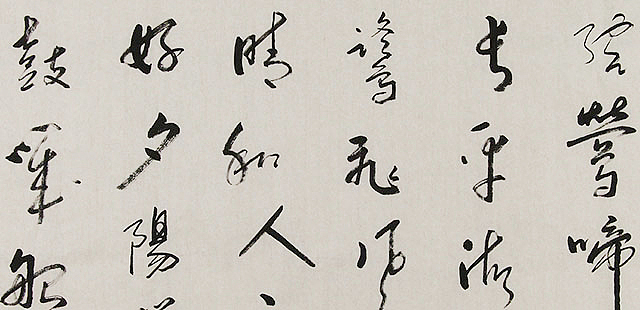 鶯啼
長平湖
鷺飛風
晴和人
好夕陽
鼓罷船